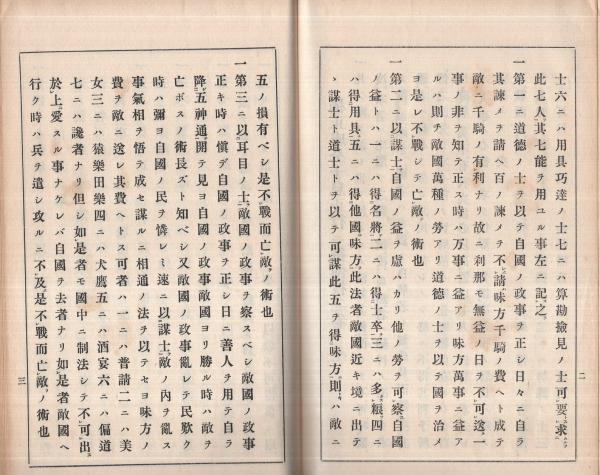 士六ニハ用具巧達ノ士七ニハ算勘撿見ノ士可要求
此七人其七能ヲ用ユル事左ニ記之
一第一ニ道德ノ士ヲ以テ自國ノ政事ヲ正シ日々ニ自ラ
其諫メヲ請ヘ百ノ諫メヲ不請味方千騎ノ費ヘト成テ
敵ニ千騎ノ有利ナリ故ニ刹那モ無益ノ日ヲ不可送一
事ノ非ヲ知テ正ス時ハ万事ニ益アリ味方萬事ニ益ア
ルハ則チ敵國萬種ノ勞アリ道德ノ士ヲ以テ國ヲ治メ
ヨ是レ不戰シテ亡敵ノ術也
一第二ニ以謀士自國ノ益ヲ慮ハカリ他ノ勞ヲ可察自國
ノ益トハ一ニハ得名將二ニハ得士卒三ニハ多粮四ニ
ハ得用具五ニハ得他國味方此法者敵國近キ境ニ出テ
ヽ謀士ト道士トヲ以テ可謀此五ヲ得味方則ハ敵ニ
二
五ノ損有ベシ是不戰而亡敵ノ術也
一第三ニ以耳目ノ士敵國ノ政事ヲ察スベシ敵國ノ政事
正キ時ハ愼デ自國ノ政事ヲ正シ日ニ善人ヲ用テ自ラ
降五神通開テ見ヨ自國ノ政事敵國ヨリ勝ル時ハ敵ヲ
亡ボスノ術長ズト知ベシ又敵國ノ政事亂レテ民歎ク
時ハ彌ヨ自國ノ民ヲ憐レミ速ニ以謀士敵ノ內ヲ亂ス
事氣相ヲ悟テ成セ謀ルニ相通ノ法ヲ以テセヨ味方ノ
費ヲ敵ニ送レ其費ヘトス可者ハ一ニハ普請二ニハ美
女三ニハ猿樂田樂四ニハ犬鷹五ニハ酒宴六ニハ偏道
七ニハ讒者ナリ但シ如是者モ國中ニ制法シテ不可出
於上愛スル事ナケレバ自國ヲ去者ナリ如是者敵國ヘ
行ク時ハ兵ヲ遣シ攻ルニ不及是不戰而亡敵ノ術也
三